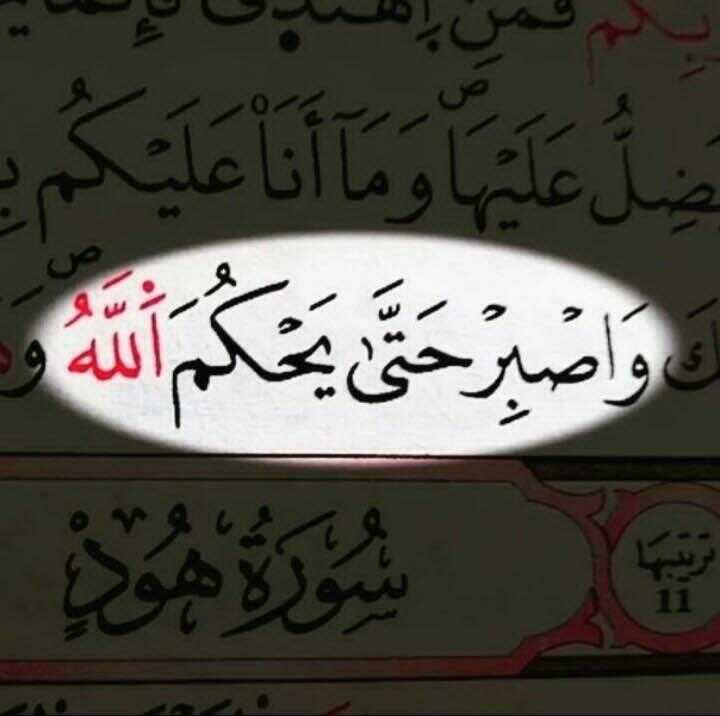 بِكُمْ فَمَنِ اِهْتَدَىٰ فَإِنَّمَا
يَضِلُّ عَلَيْهَا وَمَآ أَنَا۠ عَلَيْكُم بِ
كَ وَاصْبِرْ حَتَّىٰ يَحْكُمَ اَ۬للَّهُ وَ
سُورَةُ هُودٍ
تَرْتِيبُهَا
11